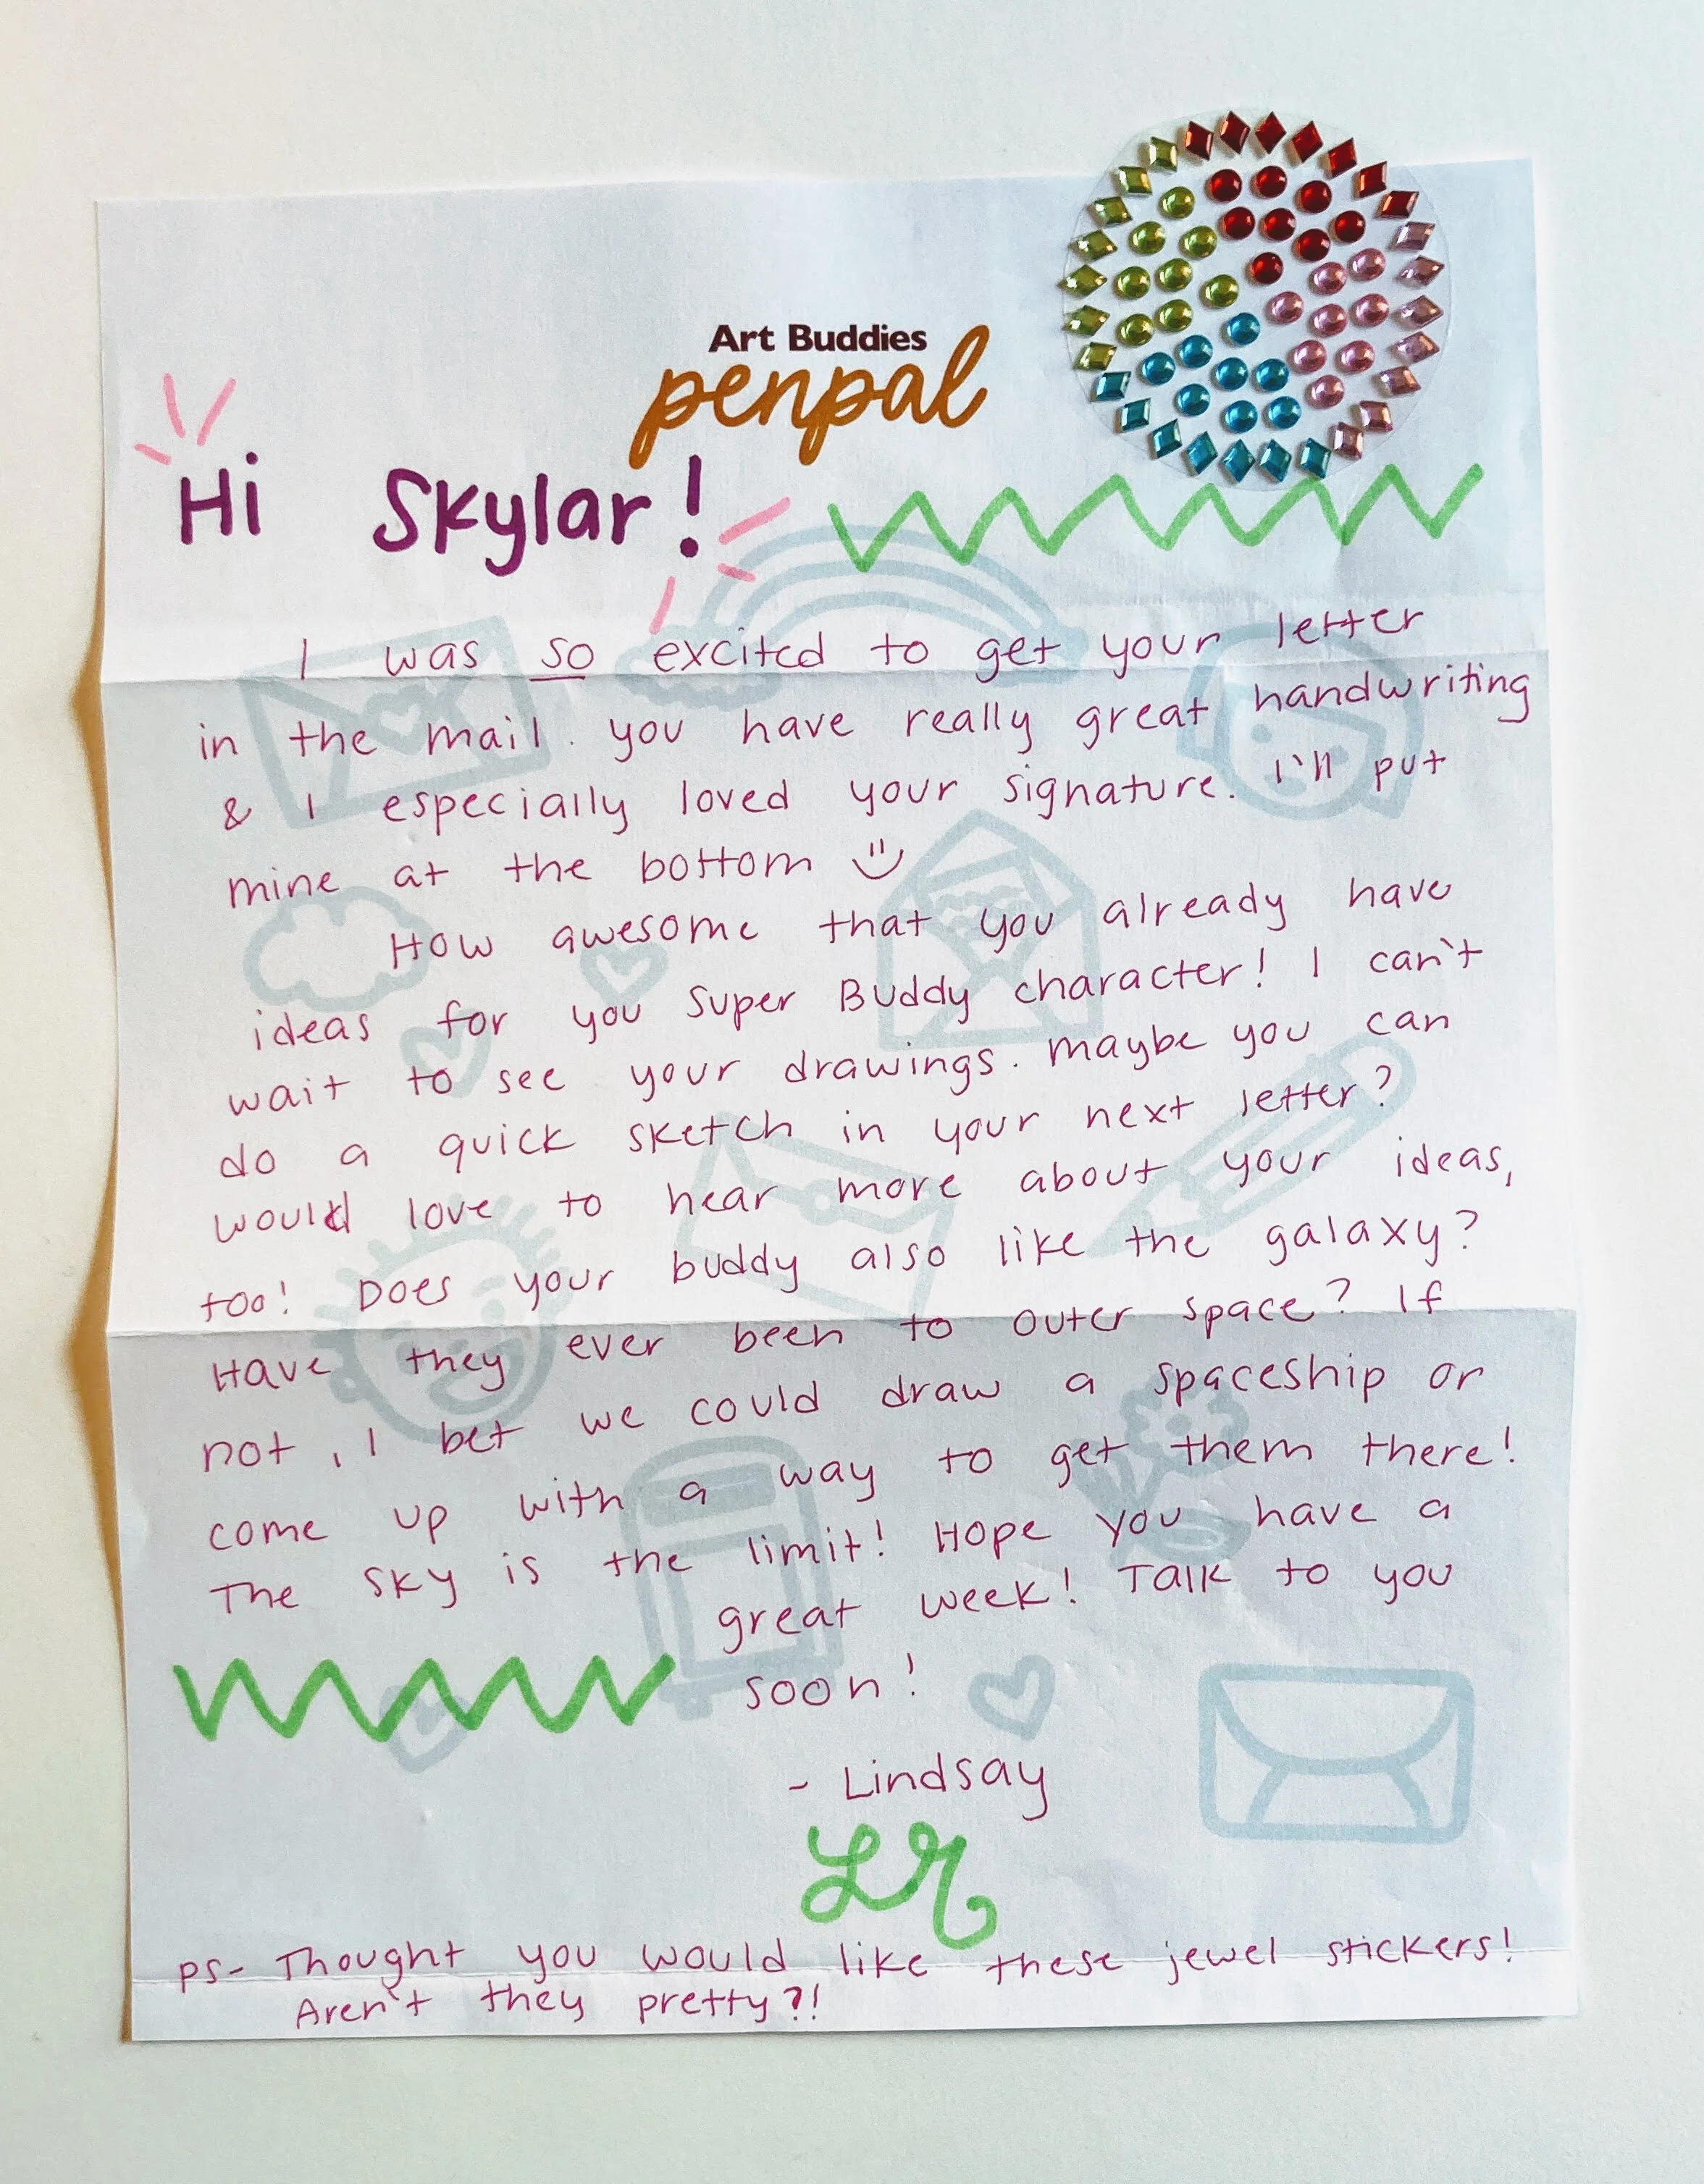 Art Buddies
penpal
Hi Skylar!
I was so excited to get your letter
in the mail. you have really great handwriting
& I especially loved your signature. I'll put
mine at the bottom
How awesome that you already have
ideas for you Super Buddy character! I can't
wait to see your drawings. Maybe you can
do a quick sketch in your next letter?
would love to hear more about your ideas,
too! Does your buddy also like the galaxy?
Have they ever been to outer space? If
not, I bet we could draw a spaceship or
come up with a way to get them there!
The sky is the limit! Hope you have a
great week! Talk to you
soon!
- Lindsay
LR
PS- Thought you would like these jewel stickers!
Aren't they pretty?!